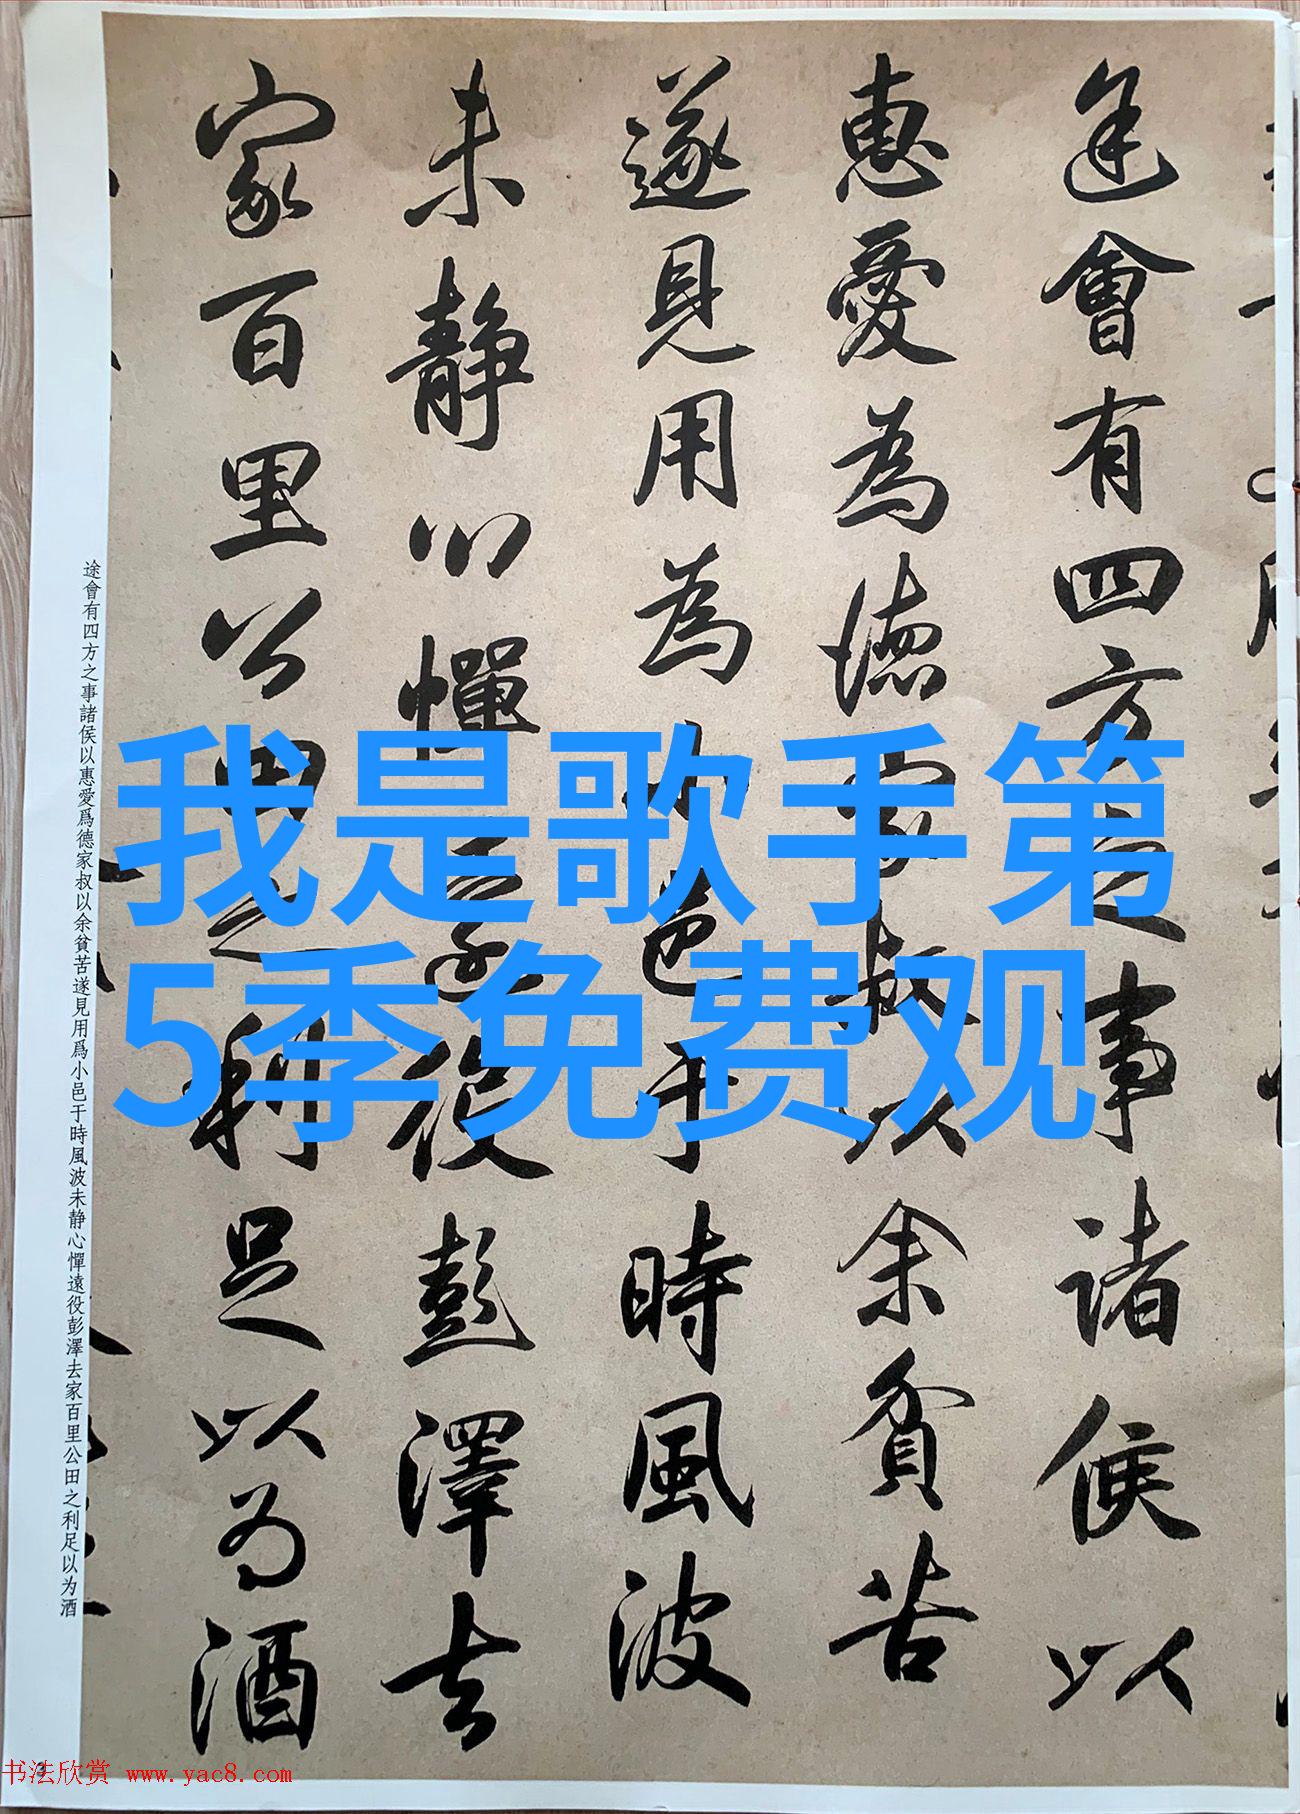 途會有四方之事諸侯以
惠愛為德家叔以余貧苦
遂見用為小邑于時風波
未静心憚遠役彭澤去
家百里公田之利足以為酒
途會有四方之事諸侯以惠愛爲德家叔以余貧苦遂見用爲小邑于時風波未静心憚遠役彭澤去家百里公田之利足以为酒
我是歌手第
5季免费观
3
书法欣赏 www.yac8.com